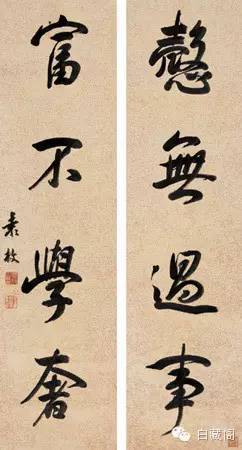 愨無過事
富不學奢
袁枚
白藏阁